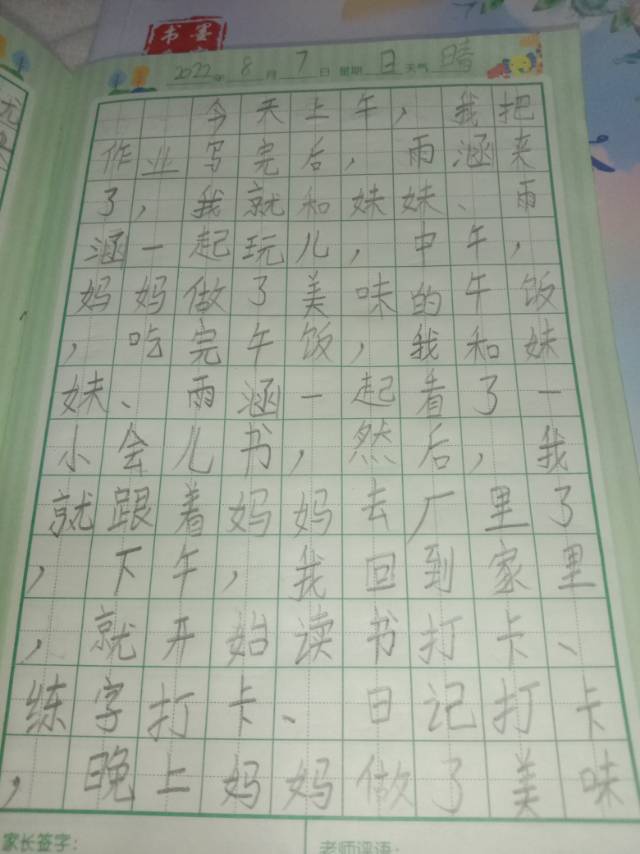 书墨
2022年 8月 7日 星期 日 天气 晴
今天上午，我把
作业写完后，雨涵来
了，我就和妹妹、雨
涵一起玩儿，中午，
妈妈做了美味的午饭
，吃完午饭，我和妹
妹、雨涵一起看了一
小会儿书，然后，我
就跟着妈妈去厂里了
，下午，我回到家里
，就开始读书打卡、
练字打卡、日记打卡
，晚上妈妈做了美味
家长签字： 老师评语：